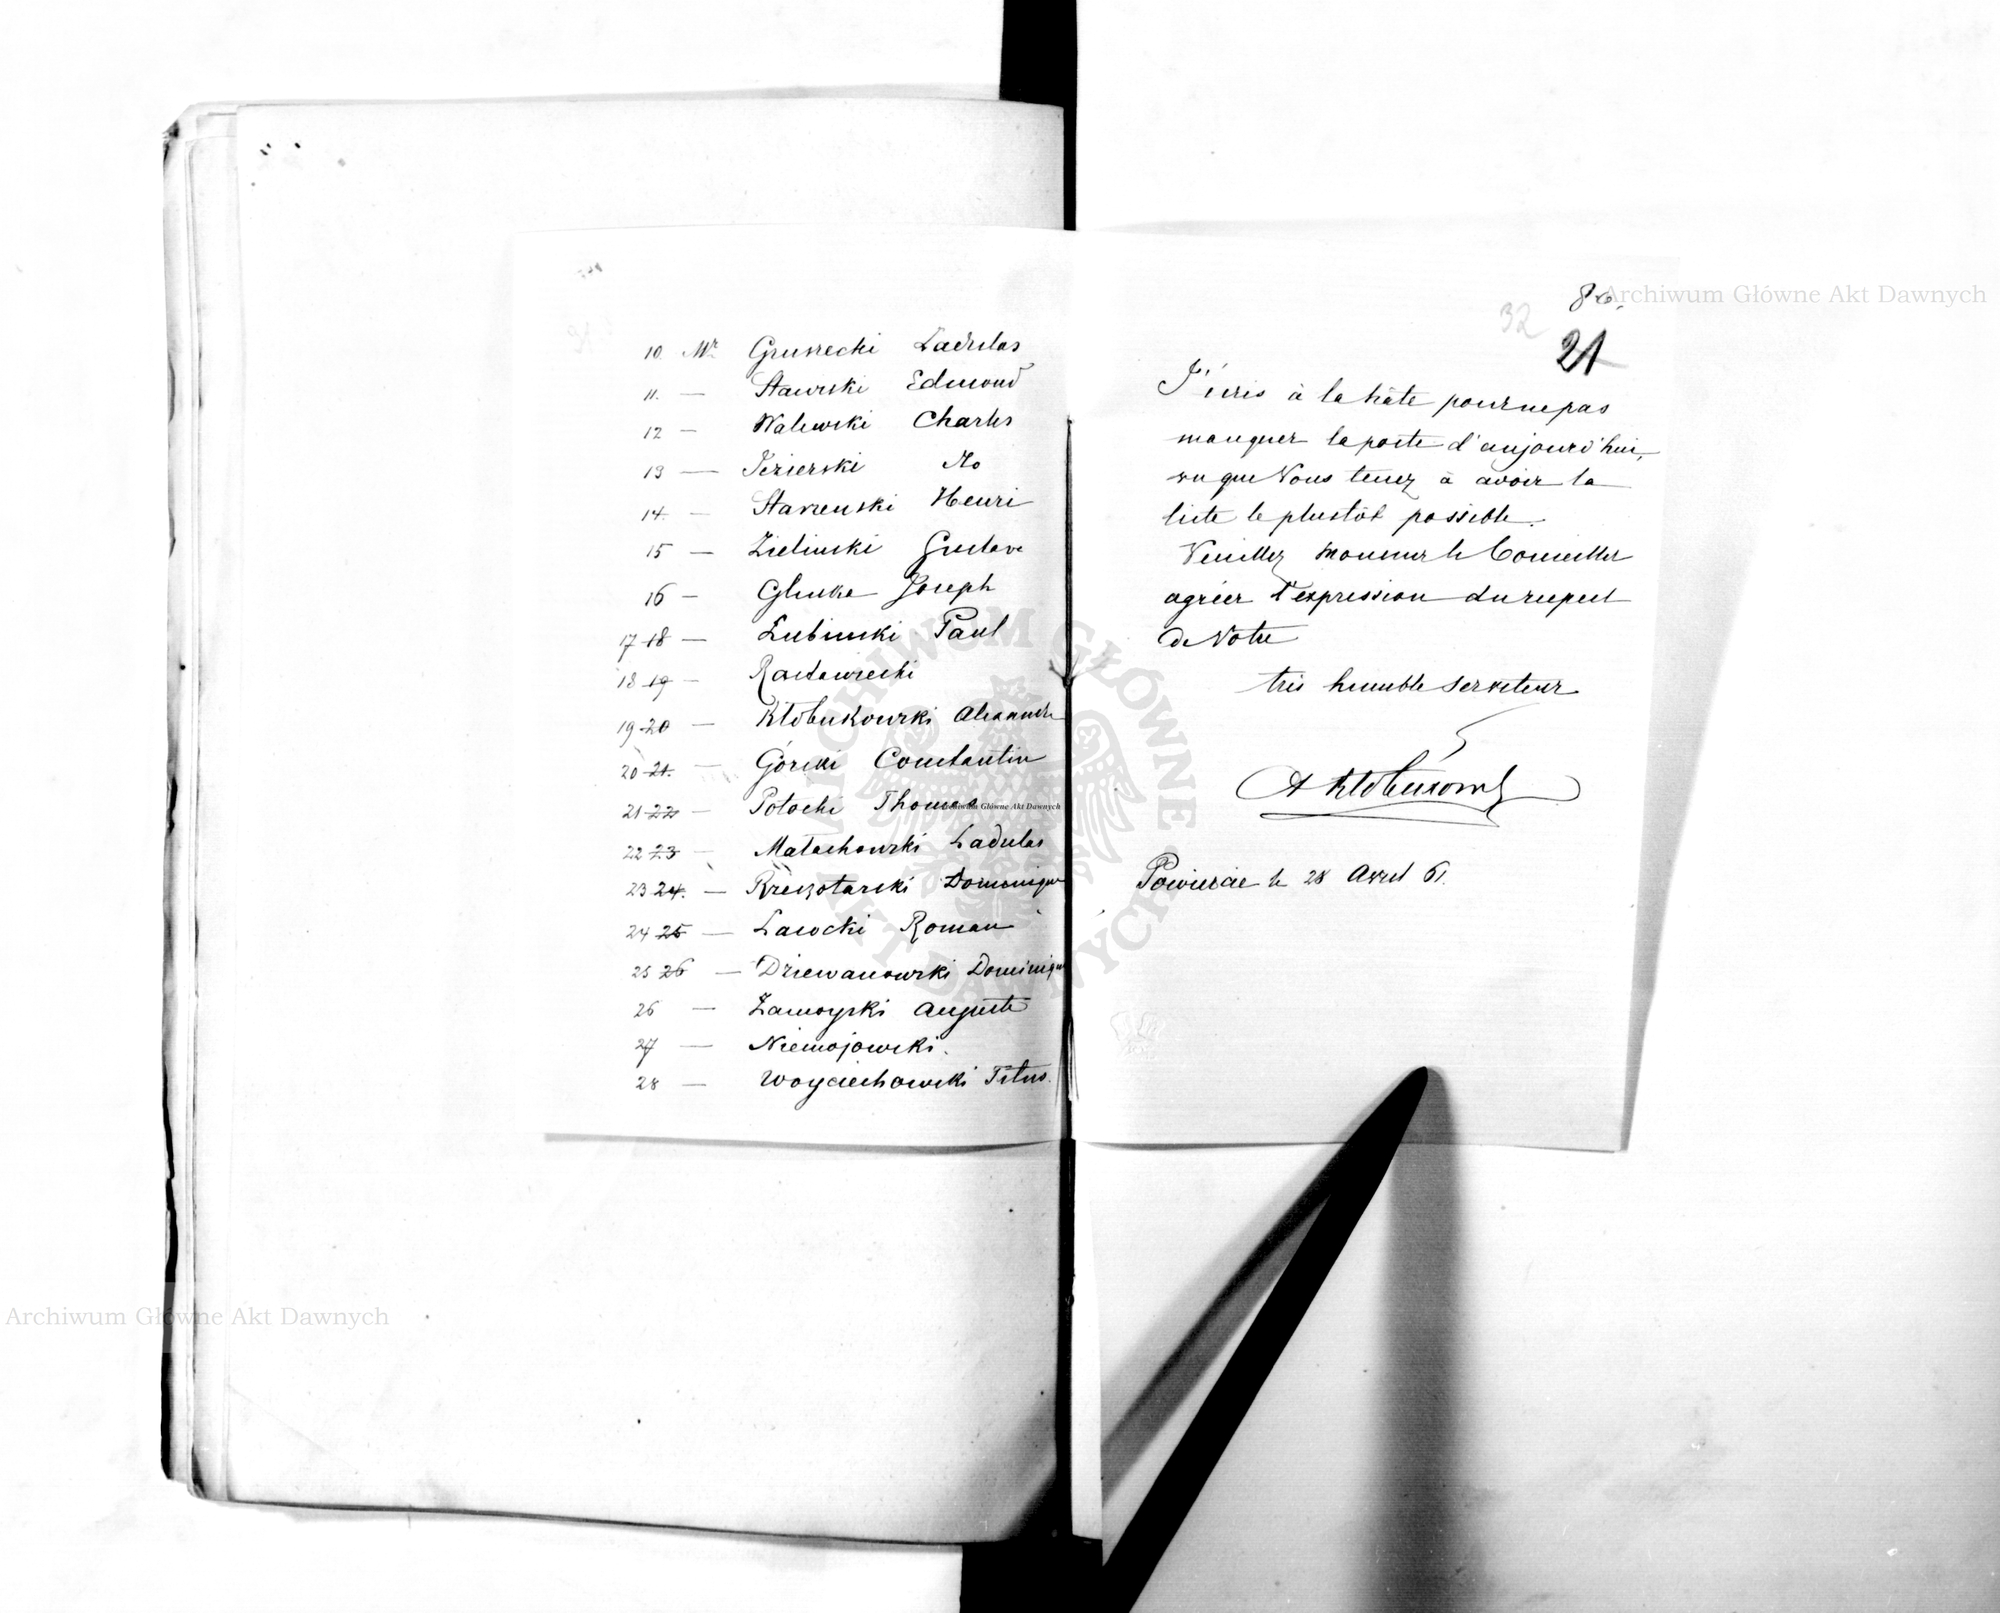 10. Mr Gruszecki Ladislas
11. — Stawiski Edmond
12 — Walewski Charles
13 — Jezierski No
14. — Starzenski Henri
15 — Zielinski Gustave
16 — Glinka Joseph
17 18 — Łubinski Paul
18 19 — Rastawiecki
19 20 — Kłobukowski Alexandre
20 21. — Górski Constantin
21 22 — Potocki Thomas
22 23 — Małachowski Ladislas
23 24. — Krzczotarski Dominique
24 25 — Łasocki Roman
25 26 — Dziewanowski Dominique
26 — Zamoyski Auguste
27 — Niemojowski.
28 — Woyciechowski Titus.
86.
32
21
J'écris à la hâte pour ne pas
manquer la poste d'aujourd'hui,
vu que Vous tenez à avoir la
liste le plustôt possible.
Veuillez Monsieur le Conseiller
agréer l'expression du respect
de Votre
très humble serviteur
A Kłobukowski
le 28 Avril 61.
Archiwum Główne Akt Dawnych
Archiwum Główne Akt Dawnych
Archiwum Główne Akt Dawnych
ARCHIWUM GŁÓWNE AKT DAWNYCH